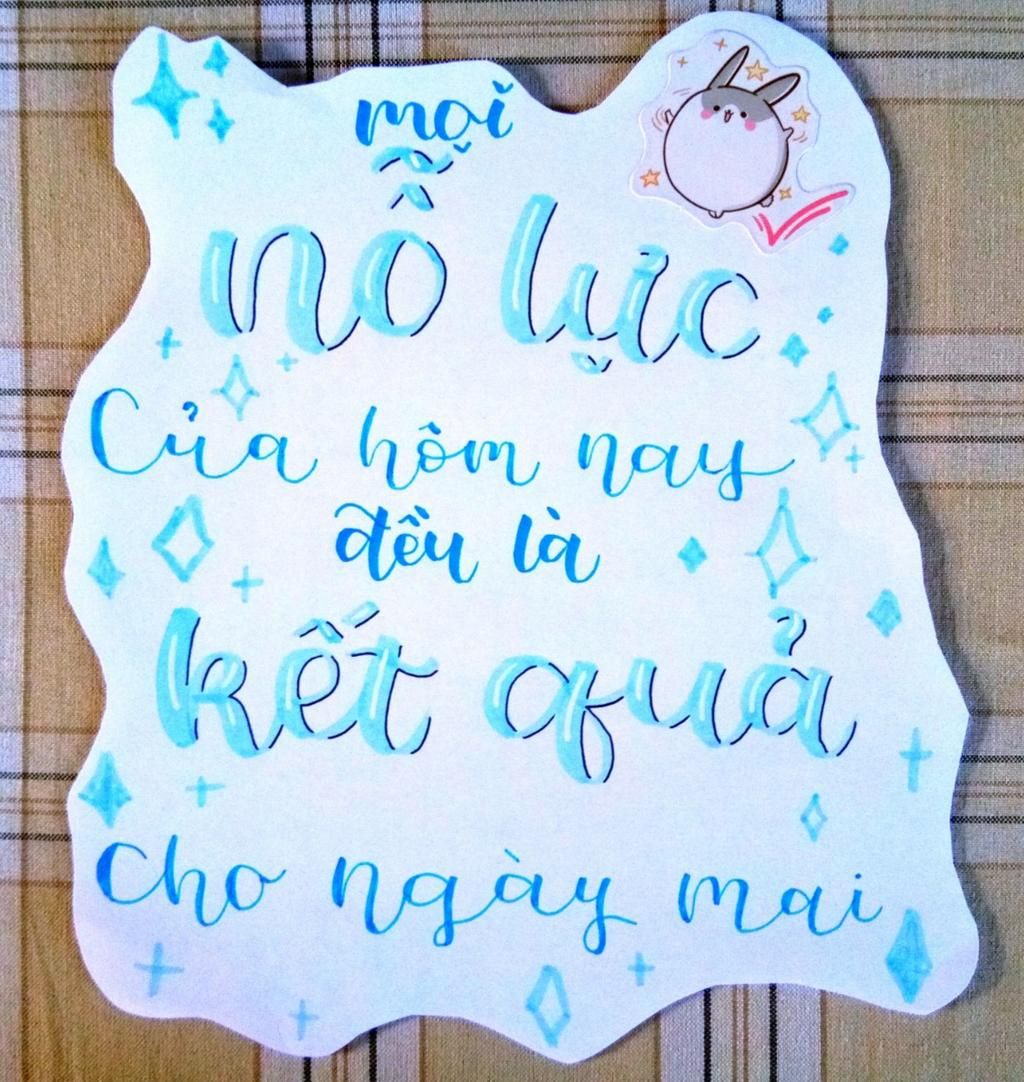 mọi
nỗ lực
Của hôm nay
đều là
kết quả
cho ngày mai